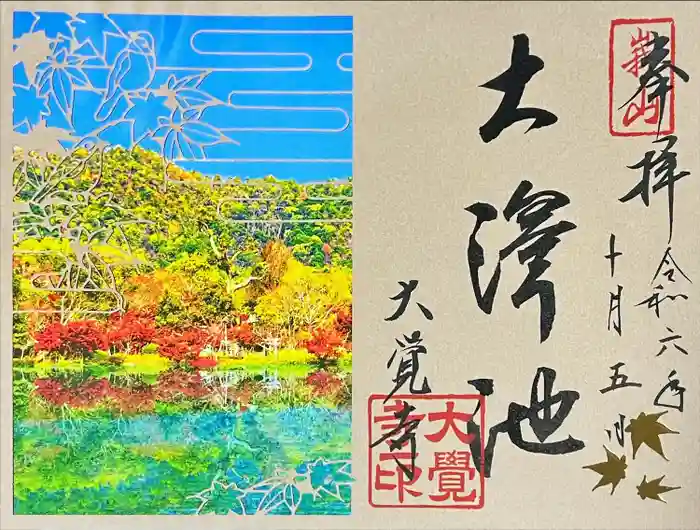 奉拝
嵯峨山
令和六年
十月五日
大澤池
大覺寺
大覺
寺印